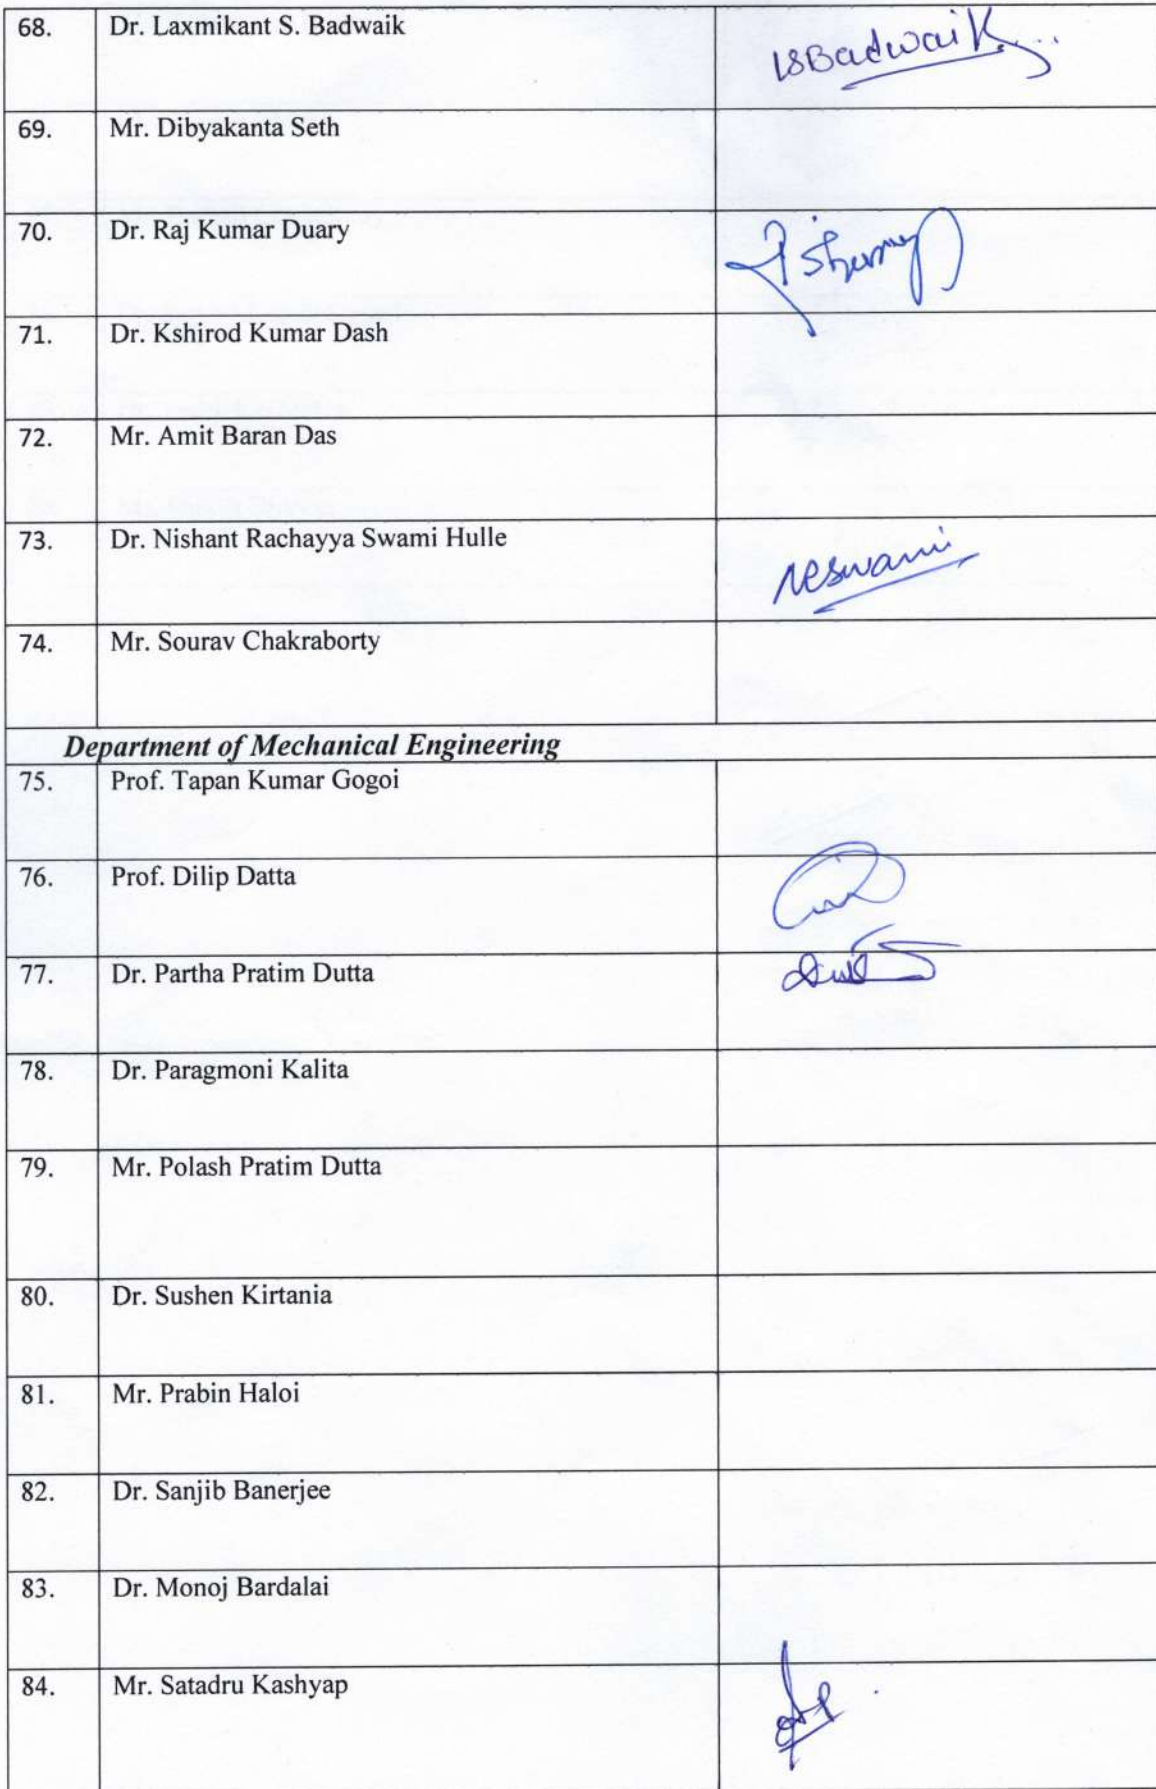 68. Dr. Laxmikant S. Badwaik LSBadwaik
69. Mr. Dibyakanta Seth
70. Dr. Raj Kumar Duary
71. Dr. Kshirod Kumar Dash
72. Mr. Amit Baran Das
73. Dr. Nishant Rachayya Swami Hulle NRSwami
74. Mr. Sourav Chakraborty
Department of Mechanical Engineering
75. Prof. Tapan Kumar Gogoi
76. Prof. Dilip Datta
77. Dr. Partha Pratim Dutta
78. Dr. Paragmoni Kalita
79. Mr. Polash Pratim Dutta
80. Dr. Sushen Kirtania
81. Mr. Prabin Haloi
82. Dr. Sanjib Banerjee
83. Dr. Monoj Bardalai
84. Mr. Satadru Kashyap